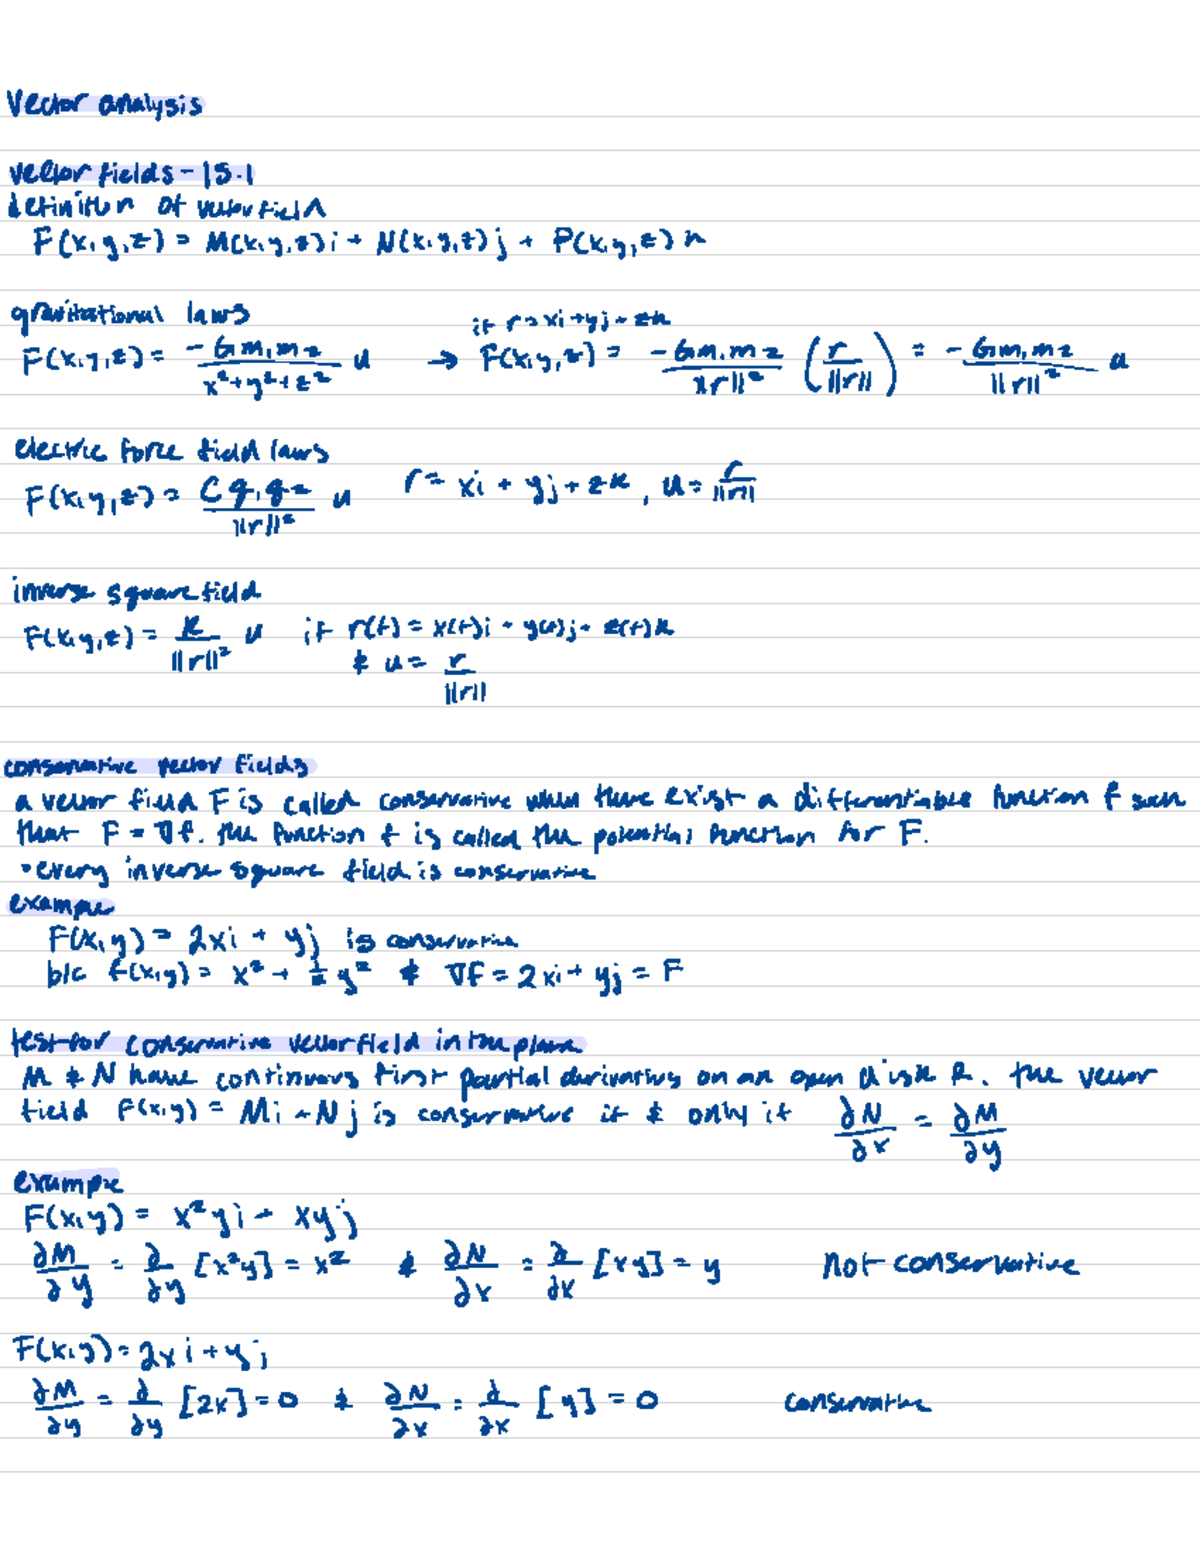 Vector analysis
vector fields - 15.1
definition of vector field
F(x,y,z) = M(x,y,z)i + N(x,y,z)j + P(x,y,z)k
gravitational laws
if r = xi + yj + zk
F(x,y,z) = -Gm₁m₂/(x²+y²+z²) u → F(x,y,z) = -Gm₁m₂/||r||² (r/||r||) = -Gm₁m₂/||r||² u
electric force field laws
F(x,y,z) = Cq₁q₂/||r||² u r = xi + yj + zk, u = r/||r||
inverse square field
F(x,y,z) = k/||r||² u if r(t) = x(t)i + y(t)j + z(t)k
& u = r/||r||
conservative vector fields
a vector field F is called conservative when there exist a differentiable function f such
that F = ∇f. the function f is called the potential function for F.
• every inverse square field is conservative
example
F(x,y) = 2xi + yj is conservative
b/c f(x,y) = x² + ½y² & ∇f = 2xi + yj = F
test for conservative vector field in the plane
M & N have continuous first partial derivatives on an open disk R. the vector
field F(x,y) = Mi + Nj is conservative if & only if ∂N/∂x = ∂M/∂y
example
F(x,y) = x²yi + xyj
∂M/∂y = ∂/∂y [x²y] = x² & ∂N/∂x = ∂/∂x [xy] = y not conservative
F(x,y) = 2xi + yj
∂M/∂y = ∂/∂y [2x] = 0 & ∂N/∂x = ∂/∂x [y] = 0 conservative